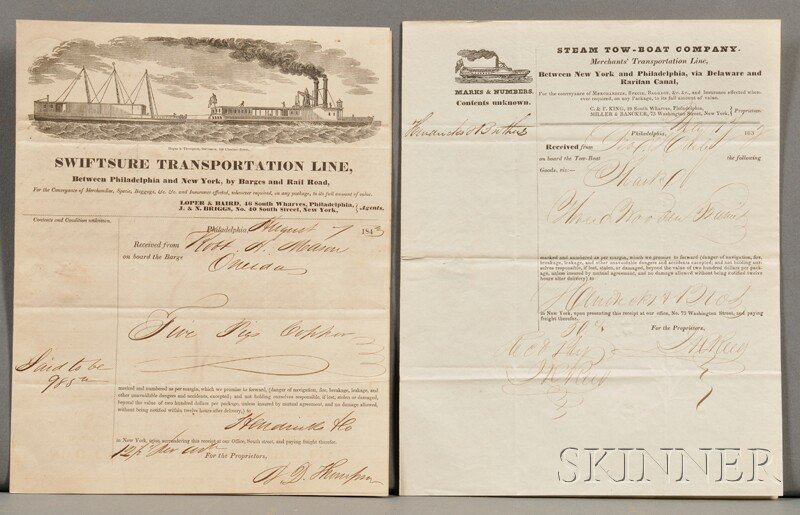 SWIFTSURE TRANSPORTATION LINE,
Between Philadelphia and New York, by Barges and Rail Road,
For the Conveyance of Merchandize, Specie, Baggage, &c. &c. and Insurance effected, whenever required, on any package, to its full amount of value.
LOPER & BAIRD, 46 South Wharves, Philadelphia,
J. & N. BRIGGS, No. 40 South Street, New York,
Agents.
Contents and Condition unknown.
Philadelphia, August 7 1843
Received from Robt H. Mason
on board the Barge Oneida
Five Pigs Copper
Said to be
marked and numbered as per margin, which we promise to forward (danger of navigation, fire, breakage, leakage, and
other unavoidable dangers and accidents, excepted; and not holding ourselves responsible, if lost, stolen, or damaged,
beyond the value of two hundred dollars per package, unless insured by mutual agreement, and no damage allowed,
without being notified within twelve hours after delivery,) to
Hendricks & Co
in New York, upon surrendering this receipt at our Office, South street, and paying freight therefor.
For the Proprietors,
D. Thompson
STEAM TOW-BOAT COMPANY.
Merchants' Transportation Line,
Between New York and Philadelphia, via Delaware and
Raritan Canal,
For the conveyance of Merchandize, Specie, Baggage, &c. &c., and Insurance effected whenever required, on any Package, to its full amount of value.
C. & F. KING, 19 South Wharves, Philadelphia,
MILLER & BANCKER, 73 Washington Street, New York,
Proprietors.
MARKS & NUMBERS.
Contents unknown.
Hendricks & Brothers
Philadelphia, 183
Received from
on board the Tow-Boat the following
Goods, viz:—
marked and numbered as per margin, which we promise to forward (danger of navigation, fire,
breakage, leakage, and other unavoidable dangers and accidents excepted; and not holding ourselves responsible, if lost, stolen, or damaged, beyond the value of two hundred dollars per package, unless insured by mutual agreement, and no damage allowed without being notified twelve
hours after delivery,) to
Hendricks & Bros
in New York, upon presenting this receipt at our office, No. 73 Washington Street, and paying
freight therefor.
For the Proprietors,
King
SKINNER